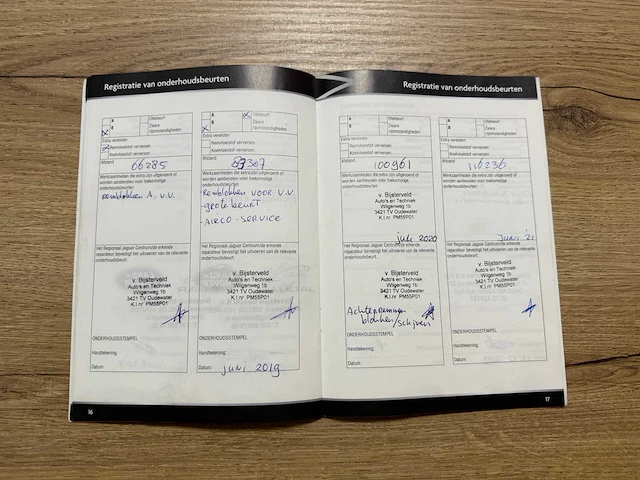 Registratie van onderhoudsbeurten
A
B
Oliebeurt
Zware
rijomstandigheden
Extra vereisten
Remvloeistof verversen
Koelvloeistof verversen
Afstand 66285
Werkzaamheden die extra zijn uitgevoerd of
worden aanbevolen voor toekomstige
onderhoudsbeurten
remblokken A. v.v.
Het Regionaal Jaguar Centrum/de erkende
reparateur bevestigt het uitvoeren van de relevante
onderhoudsbeurt.
v. Bijsterveld
Auto's en Techniek
Wilgenweg 1b
3421 TV Oudewater
K.I.nr PM55P01
ONDERHOUDSSTEMPEL
Handtekening:
Datum
16
A
B
Oliebeurt
Zware
rijomstandigheden
Extra vereisten
Remvloeistof verversen
Koelvloeistof verversen
Afstand 83307
Werkzaamheden die extra zijn uitgevoerd of
worden aanbevolen voor toekomstige
onderhoudsbeurten
Remblokken voor v.v
- grote beurt
- AIRCO-SERVICE
Het Regionaal Jaguar Centrum/de erkende
reparateur bevestigt het uitvoeren van de relevante
onderhoudsbeurt.
v. Bijsterveld
Auto's en Techniek
Wilgenweg 1b
3421 TV Oudewater
K.I.nr PM55P01
ONDERHOUDSSTEMPEL
Handtekening:
Datum JUNI 2019
Registratie van onderhoudsbeurten
A
B
Oliebeurt
Zware
rijomstandigheden
Extra vereisten
Remvloeistof verversen
Koelvloeistof verversen
Afstand 100961
Werkzaamheden die extra zijn uitgevoerd of
worden aanbevolen voor toekomstige
onderhoudsbeurten
v. Bijsterveld
Auto's en Techniek
Wilgenweg 1b
3421 TV Oudewater
K.I.nr PM55P01
juli 2020
Het Regionaal Jaguar Centrum/de erkende
reparateur bevestigt het uitvoeren van de relevante
onderhoudsbeurt.
v. Bijsterveld
Auto's en Techniek
Wilgenweg 1b
3421 TV Oudewater
K.I.nr PM55P01
Achterremmen
blokken/schijven
ONDERHOUDSSTEMPEL
Handtekening:
Datum
A
B
Oliebeurt
Zware
rijomstandigheden
Extra vereisten
Remvloeistof verversen
Koelvloeistof verversen
Afstand 116236
Werkzaamheden die extra zijn uitgevoerd of
worden aanbevolen voor toekomstige
onderhoudsbeurten
JUNI '21
Het Regionaal Jaguar Centrum/de erkende
reparateur bevestigt het uitvoeren van de relevante
onderhoudsbeurt.
v. Bijsterveld
Auto's en Techniek
Wilgenweg 1b
3421 TV Oudewater
K.I.nr PM55P01
ONDERHOUDSSTEMPEL
Handtekening:
Datum
17